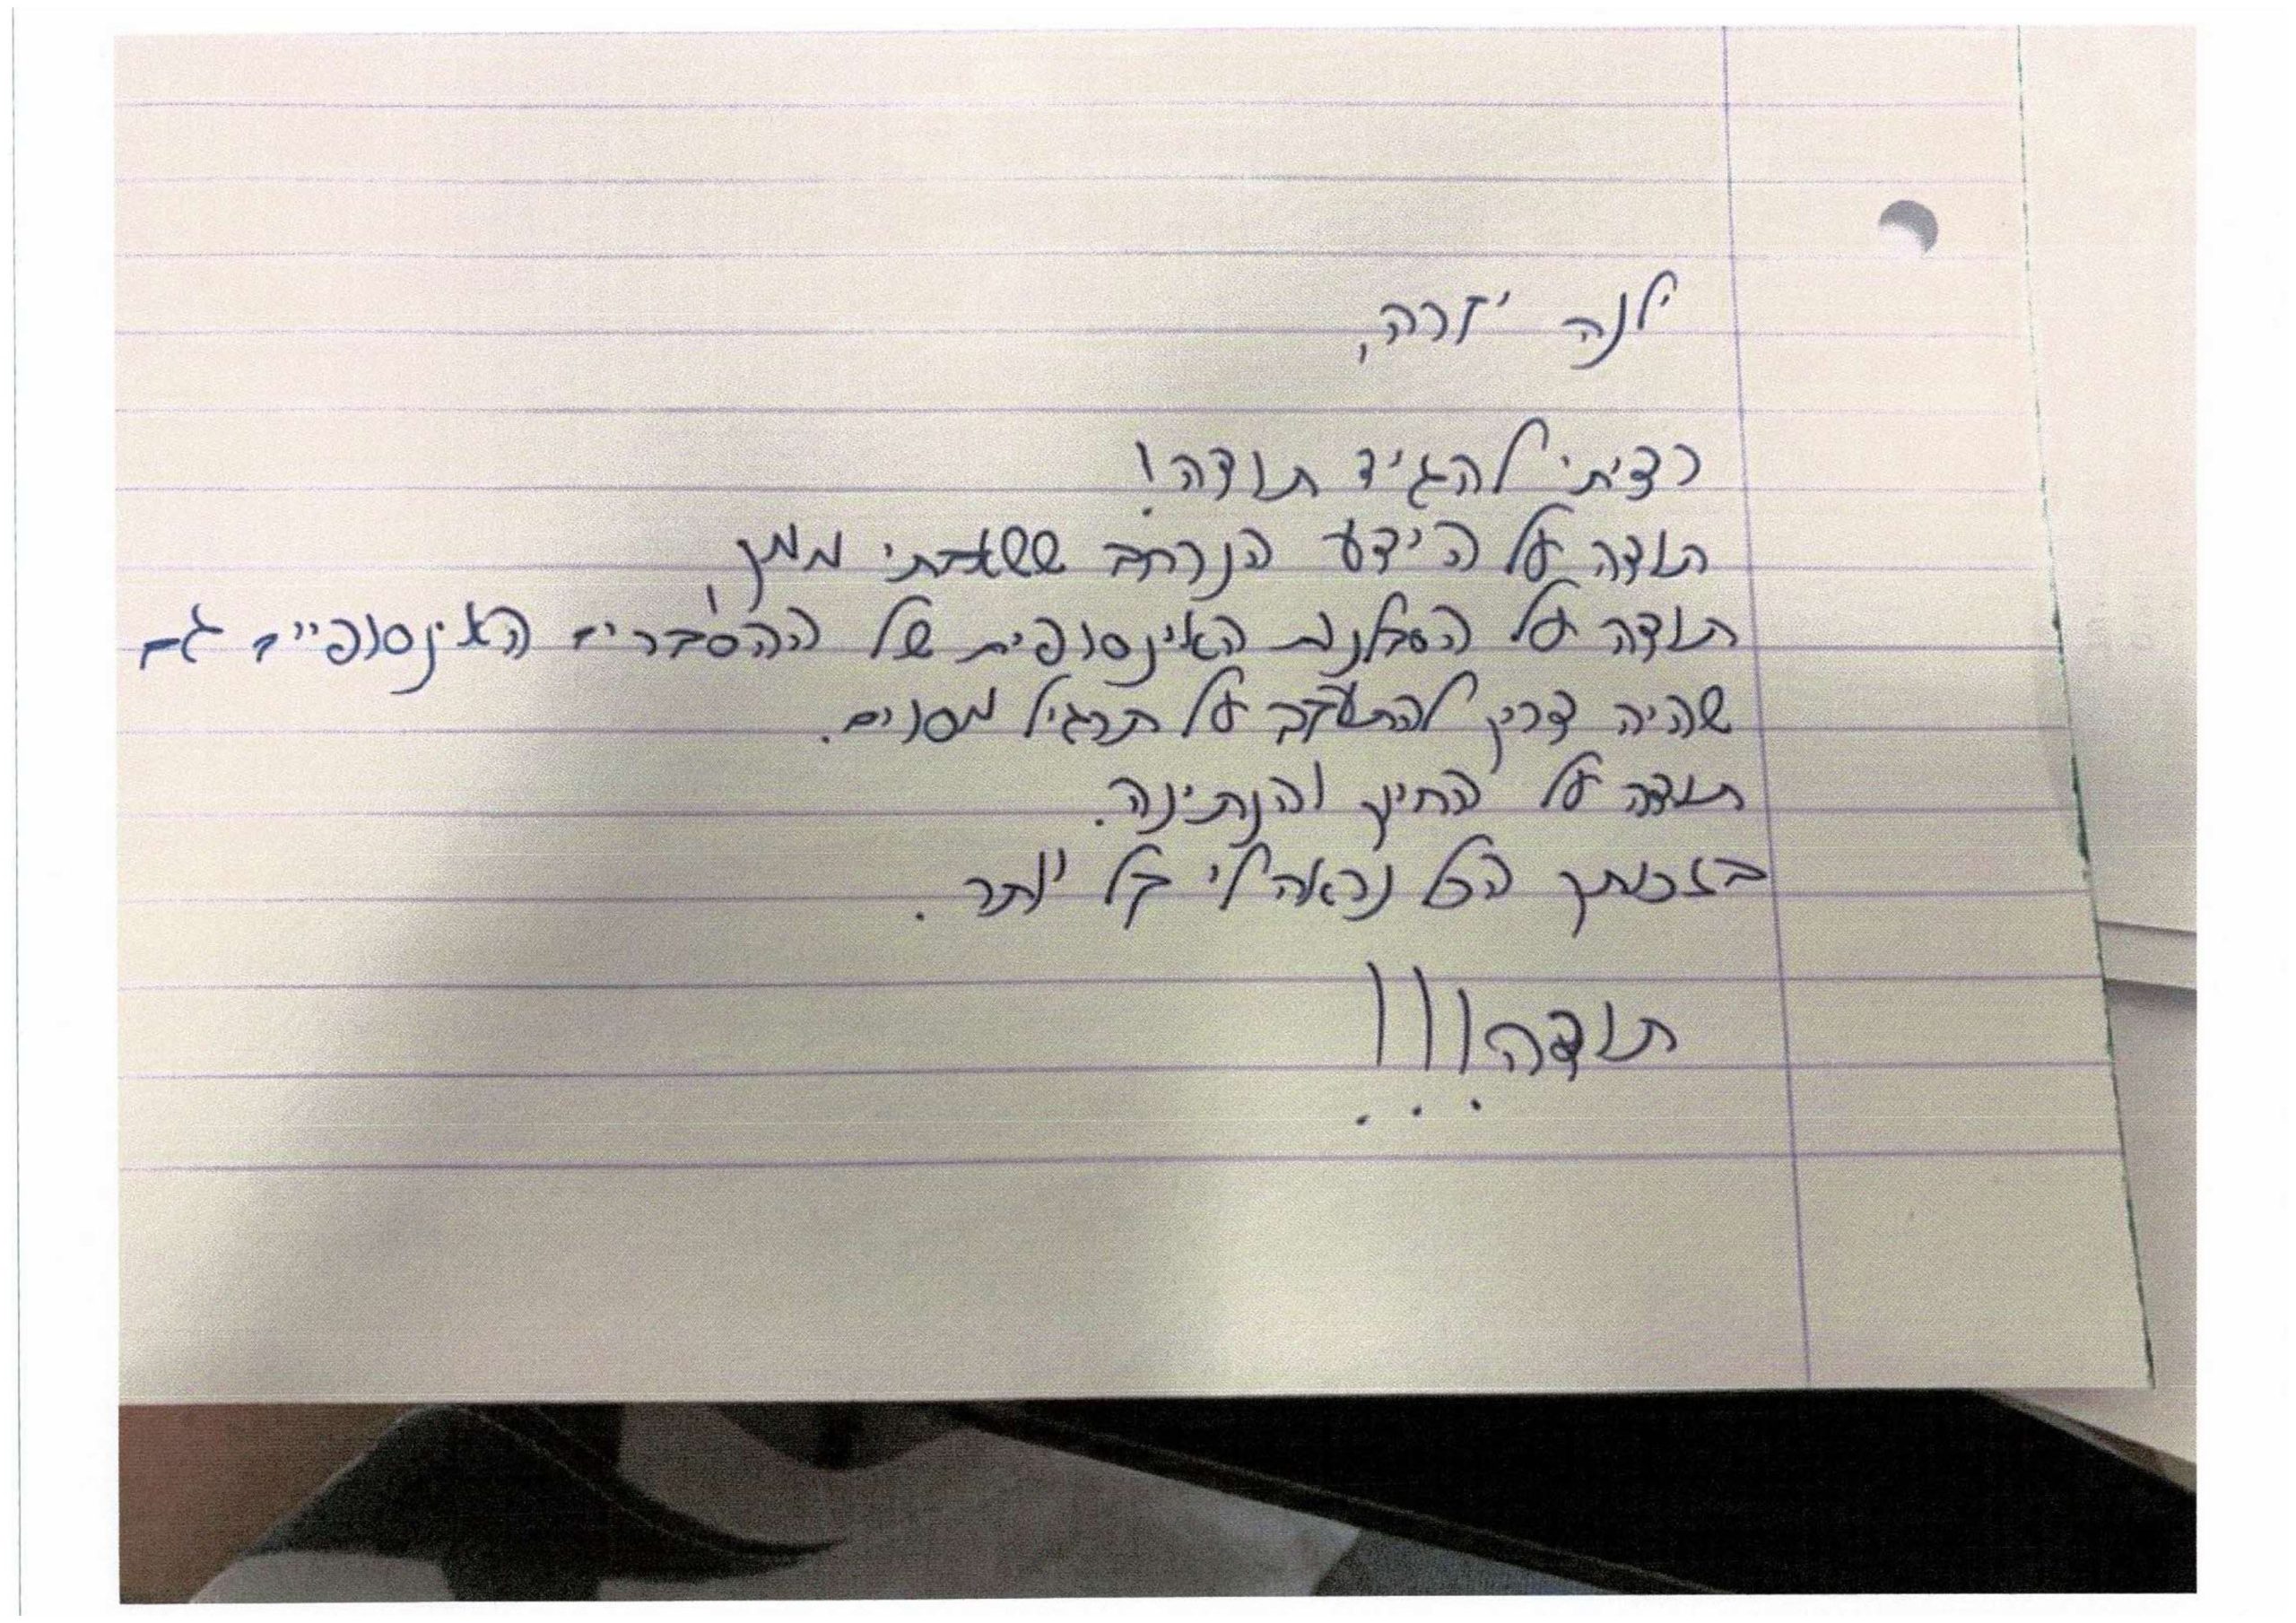 ילנה יקרה,
רציתי להגיד תודה!
תודה על הידע הנרחב ששאבתי ממך,
תודה על הסבלנות האינסופית של ההסברים האינסופיים גם
שהיה צריך להתעכב על תרגיל מסוים.
תודה על החיוך והנתינה.
בזכותך הכל נראה לי קל יותר.
תודה!!!